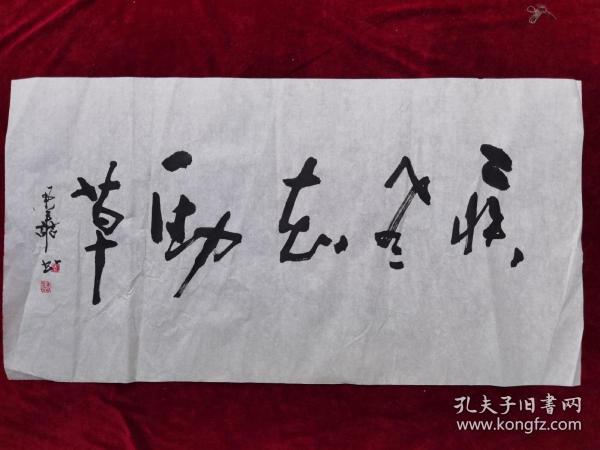 疾风知劲草
孔夫子旧書网
www.kongfz.com